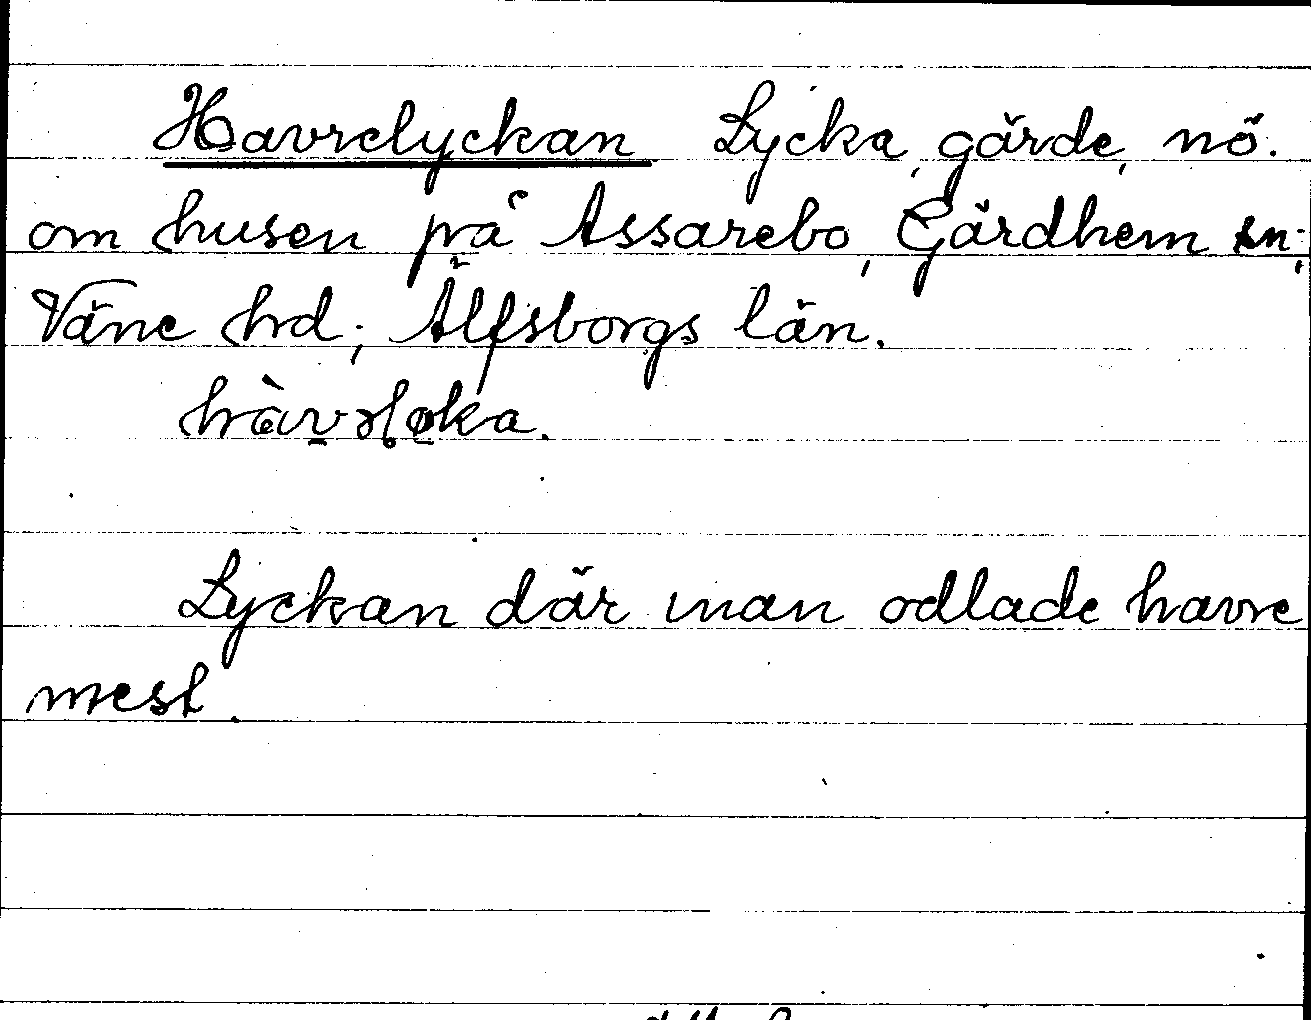 Havrelyckan Lycka, gärde, nö.
om husen på Assarebo, Gärdhem sn;
Väne hrd; Älfsborgs län.
Lyckan där man odlade havre
mest.